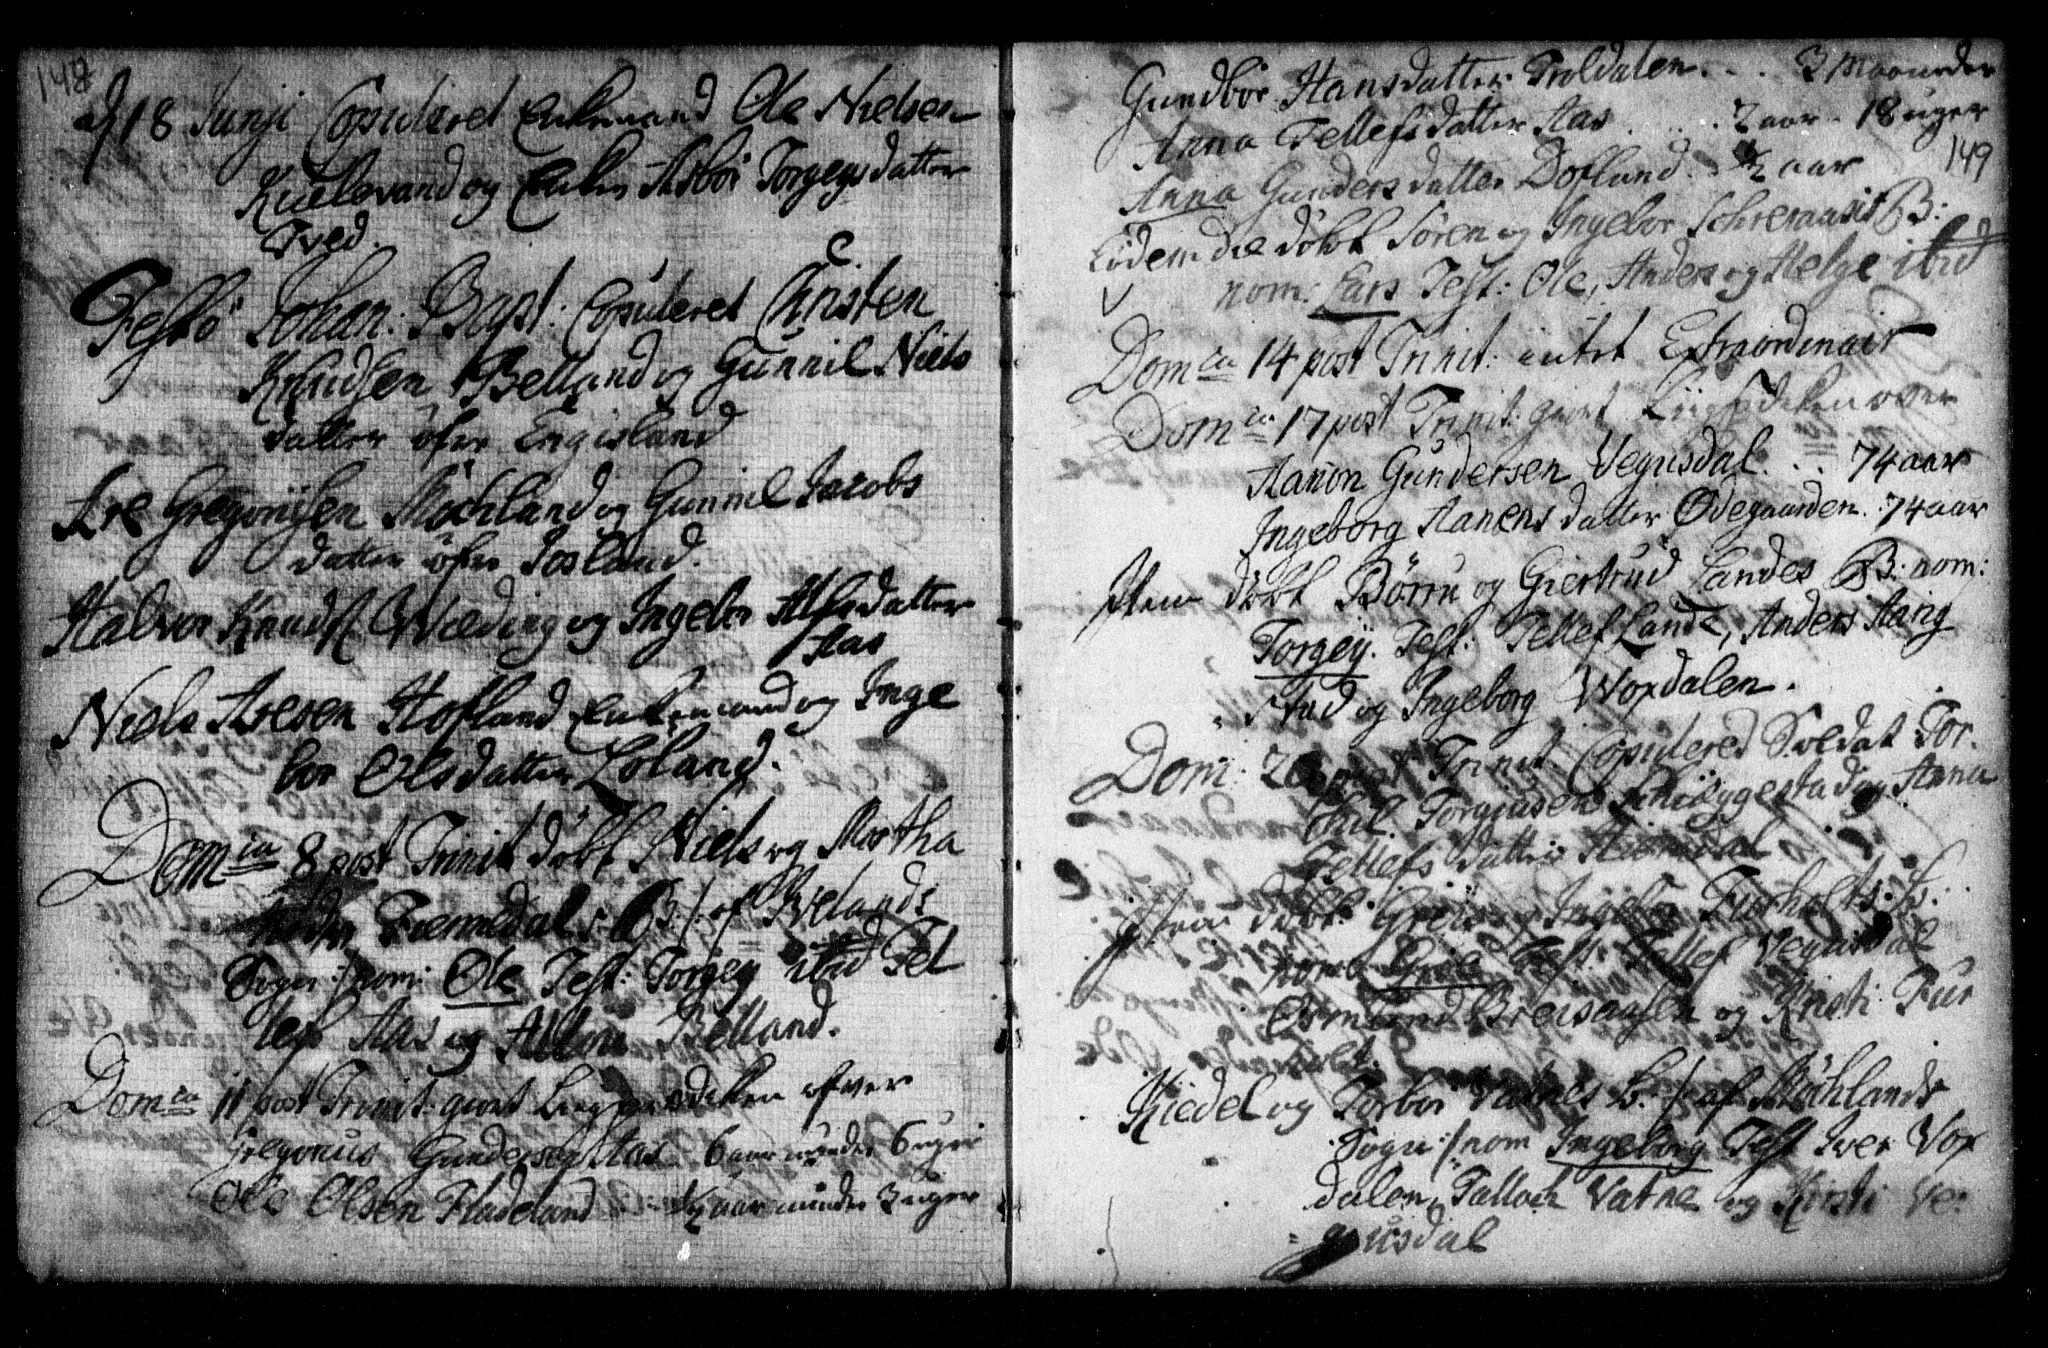 148
d 18 Junji Copuleret Enkemand Ole Nielsen
Kielevand og Enken Asbör Torgegsdatter
Tved.
Festo Johan: Bapt: Copuleret Christen
Knudsen Belland og Gunnil Niels
datter öfre Engisland
Are Gregorisen Möchland og Gunnil Jacobs
datter öfre Josland.
Halvor Knuds Wæding og Ingebor Alfsdatter
Aas
Niels Aresen Hofland Enkemand og Inge
bor Olsdatter Loland.
Domca 8 post Trinit döbt Niels og Martha
Tiernedals B: /: af Bielands
Sogn :/ nom: Ole Test: Torgey ibid Tel
lef Aas og Belland.
Domca 11 post Trinit: giort Liigprædiken ofver
Gregorius Gundersen Aas 6 aar minder 6 uger
Ole Olsen Fladeland ½ aar minder 3 uger
Gundbör Hansdatter Troldalen ... 3 Maaneder
Anna Tellefsdatter Aas ..... 2 aar - 18 uger
149
Anna Gundersdatter Dofland. ½ aar
Eodem die döbt Sören og Ingebor B:
nom: Lars Test: Ole, Anders og Helge ibid
Domca 14 post Trinit: intet Extraordinair
Domca 17 post Trinit: giort Liigprdiken over
Aanon Gundersen Vegusdal ... 74 aar
Ingeborg Aanensdatter Ödegaarden. 74 aar
Item döbt Börru og Giertrud Landes B: nom:
Torgey. Test: Tellef Lande, Anders Haing
stad og Ingeborg Woxdalen.
Dom: post Trinit Copulered Soldat Tor-
chil Torgiusen og Anna
Tellefsdatter
Item döbt og Ingebor Furholts B:
nom: Test: Tellef Vegusdal
Osmund og Kirsti Fur
holt.
Kiedel og Torbor Vatnes B: /: af Möchlands
Sogn :/ nom Ingeborg Test Iver Vox
dalen, Talloch Vatne og Kirsti Ve-
gusdal